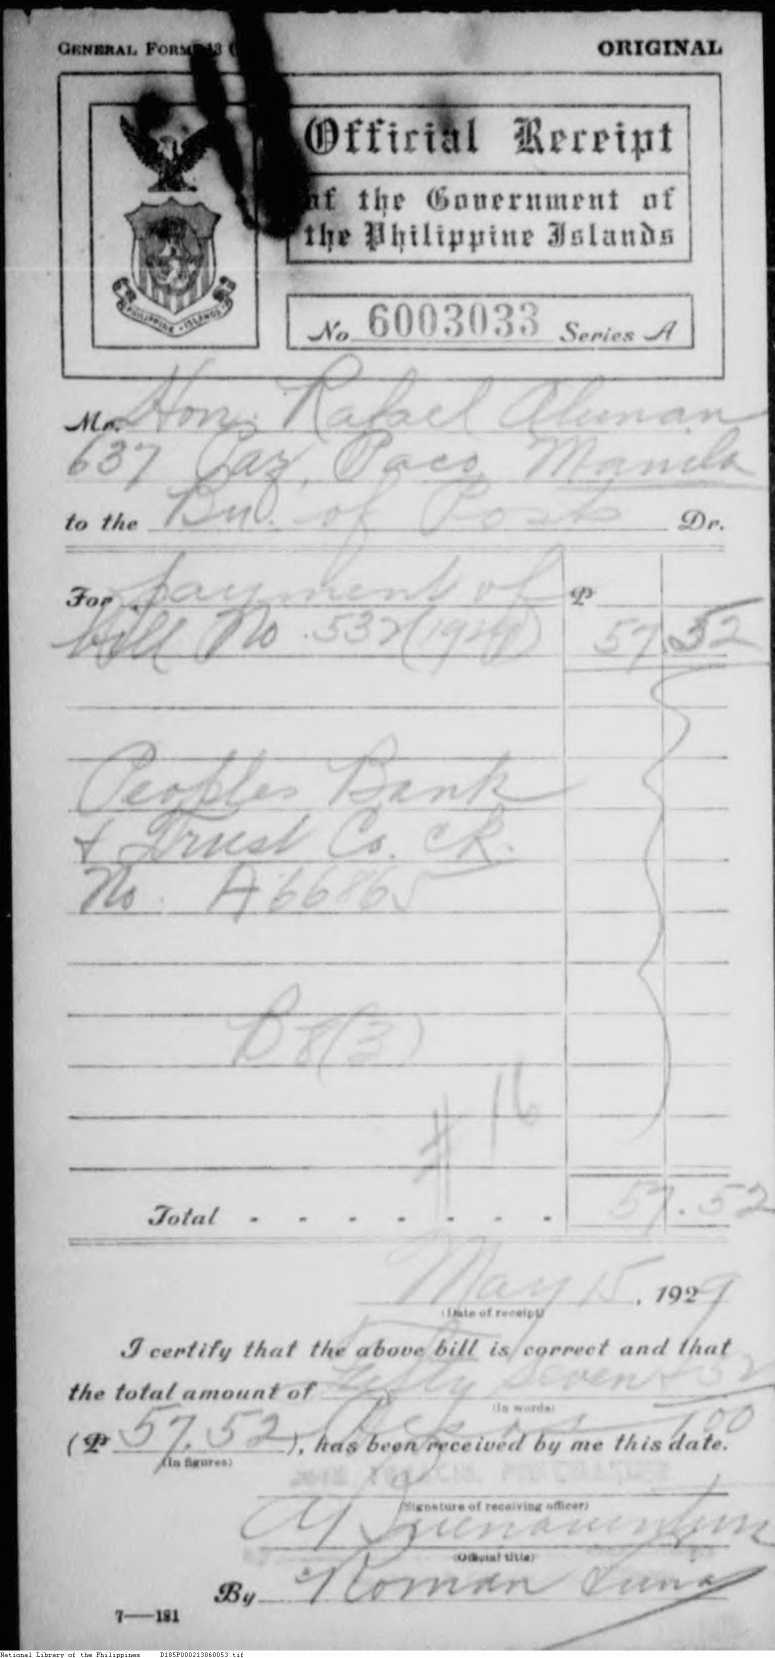 GENERAL FORM 13
ORIGINAL
Official Receipt
of the Government of
the Philippine Islands
PHILIPPINE ISLANDS
No. 6003033 Series A
Mr. Hon. Rafael Alunan
637 Paz, Paco, Manila
to the Bu. of Posts Dr.
For payment of ₱
bill No. 532 (1929) 57.52
Peoples Bank
& Trust Co. ck.
No. A66865
B8(3)
#16
Total - - - - - - - 57.52
May 15, 1929
(Date of receipt)
I certify that the above bill is correct and that
the total amount of Fifty Seven & 52
(In words)
(₱ 57.52 ), Pesos 100 has been received by me this date.
(In figures)
(Signature of receiving officer)
(Official title)
By Roman Luna
7—181
National Library of the Philippines D185P000213060053.tif